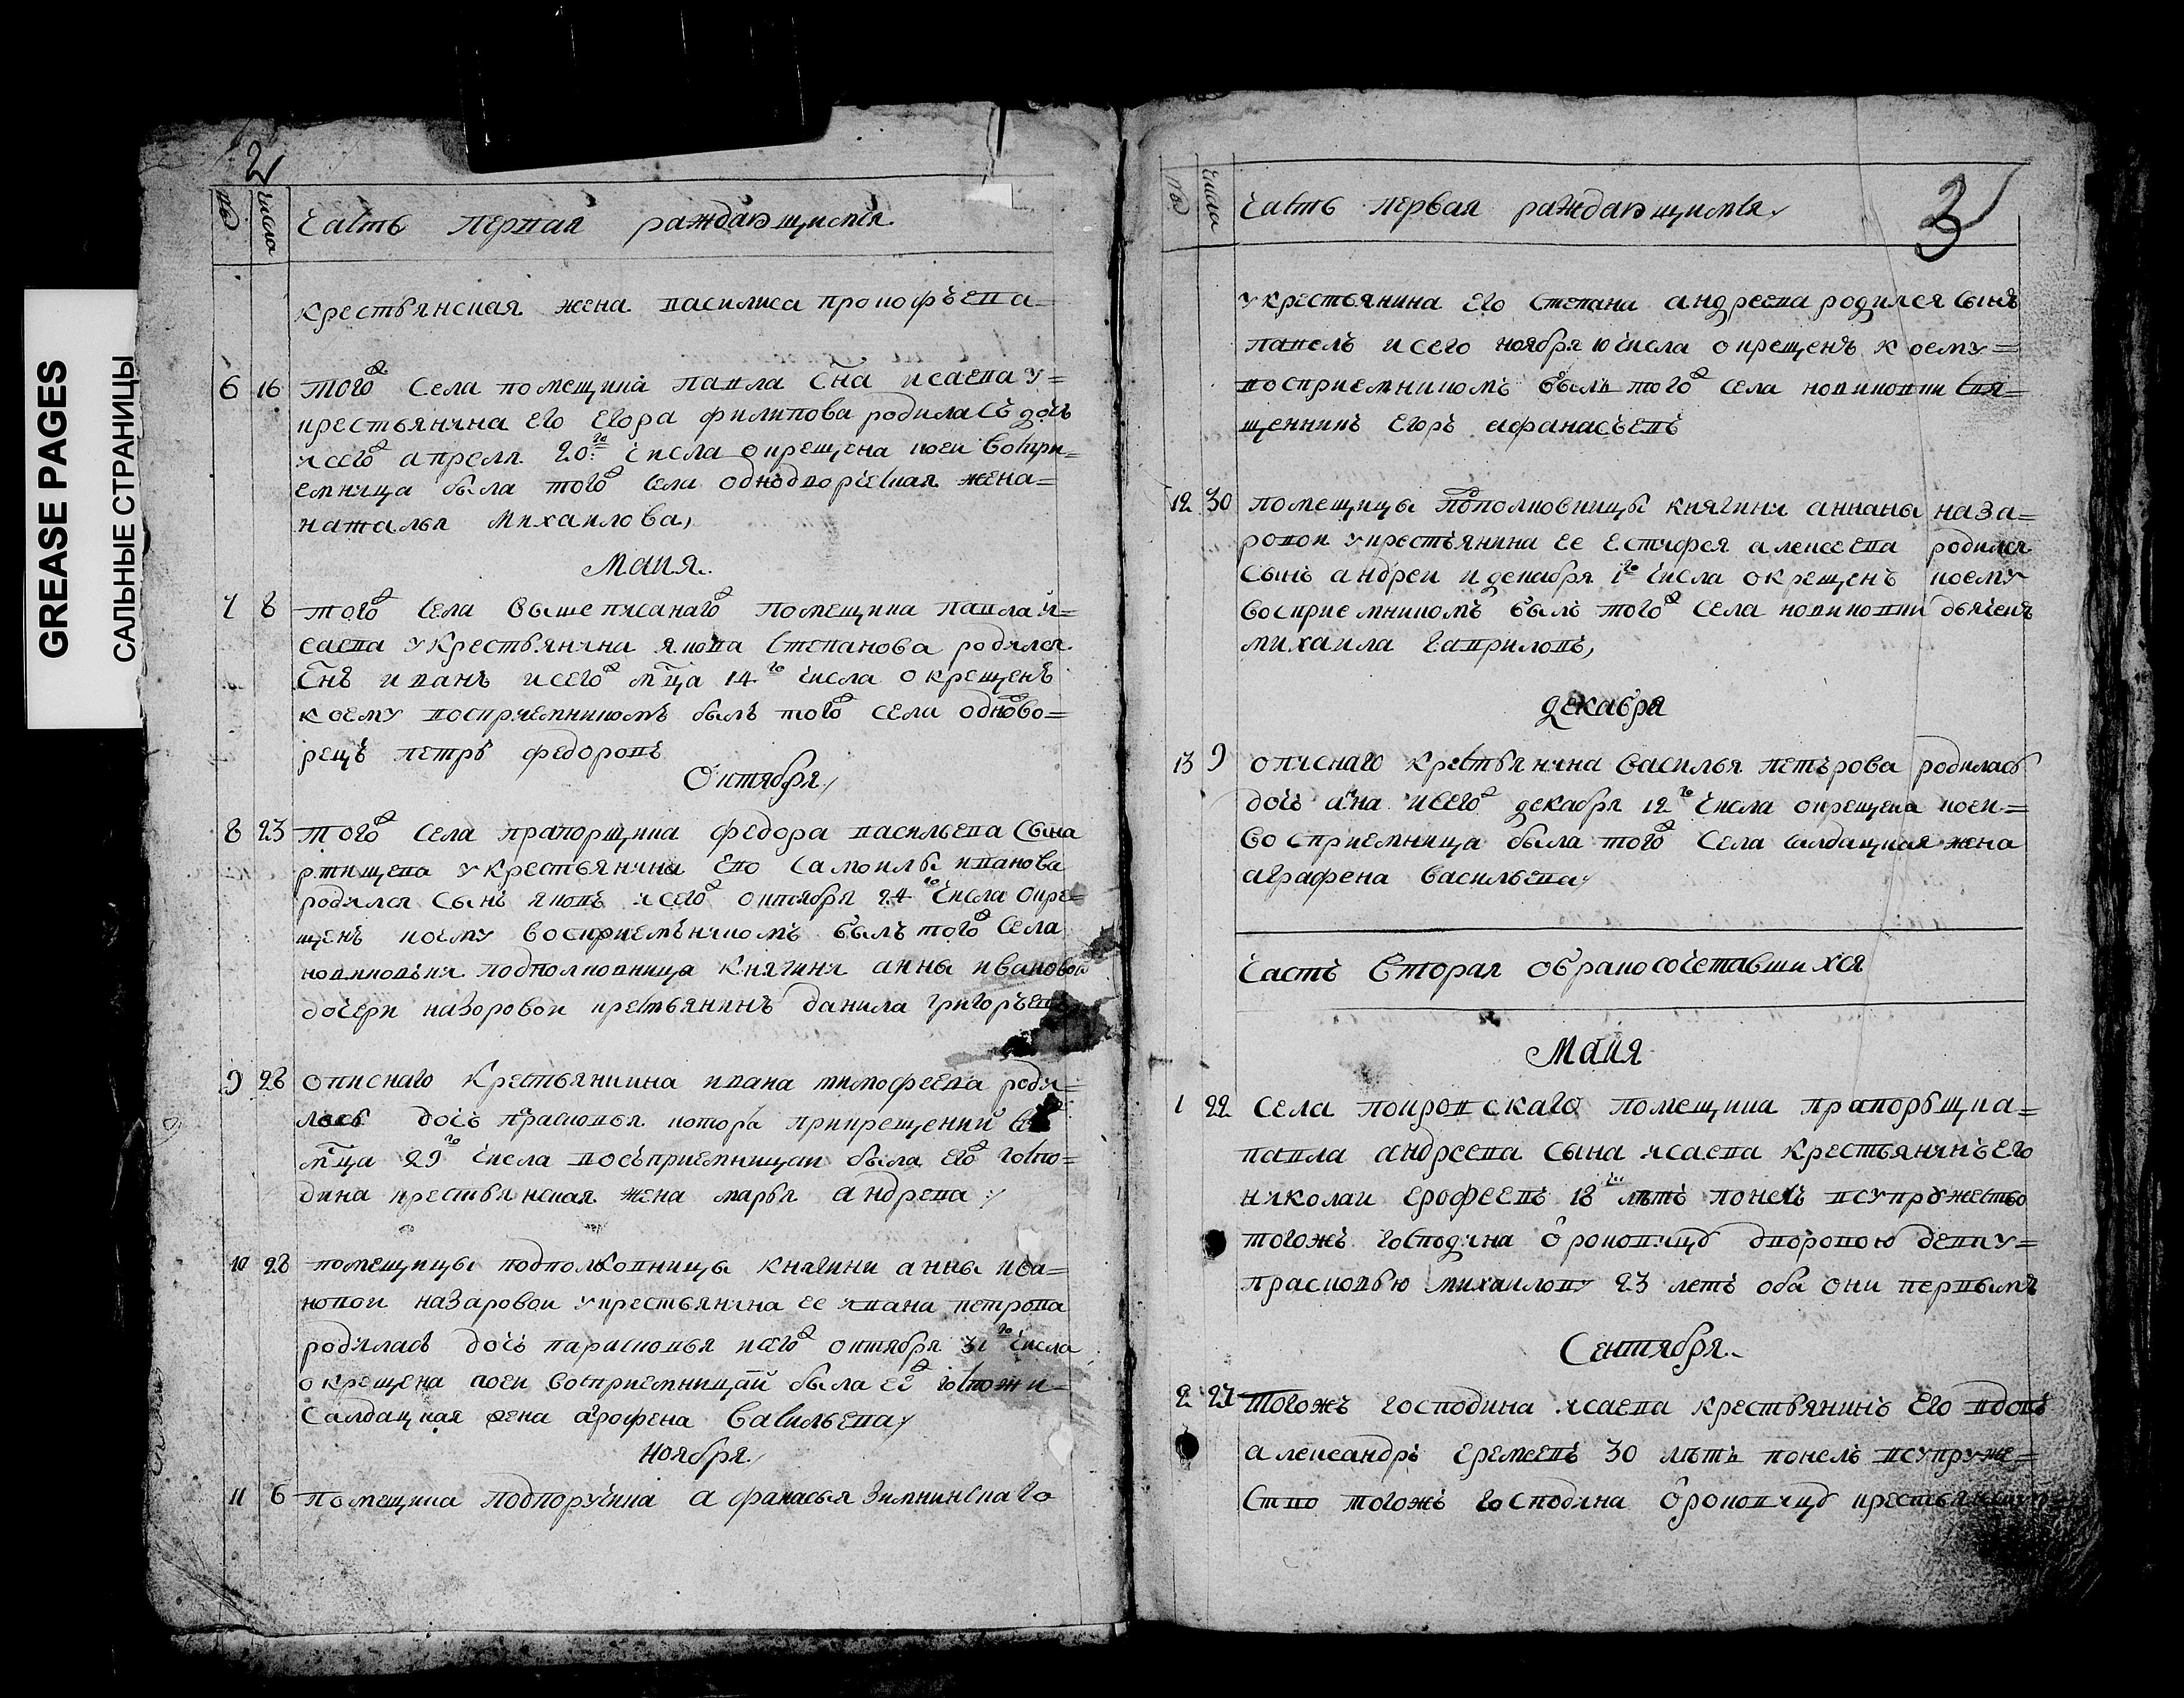 GREASE PAGES
САЛЬНЫЕ СТРАНИЦЫ
2
№ числа
Часть первая раждающимся
крестьянская жена василиса прокофьева
6 16 того села помещика павла сна исаева у=
крестьянина его егора филипова родилась дочь
исего апреля 20го числа окрещена коеи воспри=
емница была того села однодворческая жена=
наталья михаилова,
Маия
7 8 того села вышеписанаго помещика павла и=
саева у крестьянина якова степанова родился
снъ иванъ исего мца 14го числа окрещенъ
коему восприемникомъ былъ того села однодво=
рецъ петръ федоровъ
Октября
8 23 того села прапорщика федора васильева сына
ртищева у крестьянина его самоилы иванова
родился сынъ яковъ исего октября 24го числа окре=
щенъ коему восприемъникомъ былъ того села
новиковкия подполковница княгиня анны ивановои
дочери назоровои крестьянинъ данила григорьевъ
9 28 описнаго крестьяниина ивана тимофеева роди=
лась дочь прасковья котора прикрещении
мца 29го числа восъприемницаи была его госпо=
дина крестьянская жена марья андрева
10 28 помещицы подполковницы княгини анны ива=
новои назаровои у крестьянина ее ивана петрова
родилась дочь парасковья исего октября 31го числа
окрещена коеи восприемницаи была ее госпожи=
салдацкая жена агрофена васильева
Ноября
11 6 помещика подпоручика афанасья зимнинскаго
3
№ числа
Часть первая раждающимся
у крестьянина его степана андреева родился сынъ
павелъ исего ноября 10 числа окрещенъ коему=
восприемникомъ былъ того села новиковки свя=
щенникъ егоръ афанасьевъ
12 30 помещицы пополковницы княгини аннаны наза=
ровои у крестьянина ее естифея алексеева родился
сынъ андреи и декабря 1го числа окрещенъ коему
восприемникомъ былъ того села новиковки дьячекъ
михаила гавриловъ,
декабря
13 9 описнаго крестьянина василья петърова родилась
дочь ана исего декабря 12го числа окрещена коеи=
восприемница была того села салдацкая жена
аграфена васильева
часть вторая обракосочетавшихся
Маия
1 22 села покровскаго помещика прапорьщика=
павла андреева сына исаева крестьянинъ его
николаи ерофеевъ 18 лѣтъ понелъ всупружество
тогожъ господина дворовою девку=
прасковью михаилову 23 летъ оба они первымъ
Сентября
2 27 Тогожъ господина исаева крестьянинъ его вдовъ
александръ еремеевъ 30 лѣтъ понелъ всупруже=
ство тогожъ господина